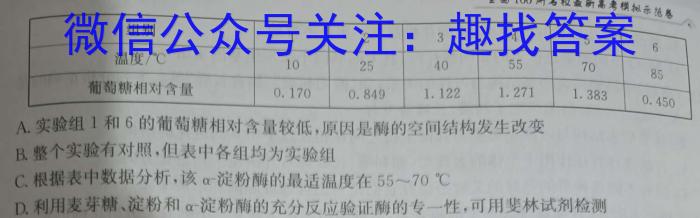 全国100所名校最新高考模拟示范卷
微信公众号关注：趣找答案
3 6
温度/℃ 10 25 40 55 70 85
葡萄糖相对含量 0.170 0.849 1.122 1.271 1.383 0.450
A.实验组1和6的葡萄糖相对含量较低,原因是酶的空间结构发生改变
B.整个实验有对照,但表中各组均为实验组
C.根据表中数据分析,该α-淀粉酶的最适温度在55～70 ℃
D.利用麦芽糖、淀粉和α-淀粉酶的充分反应验证酶的专一性,可用斐林试剂检测